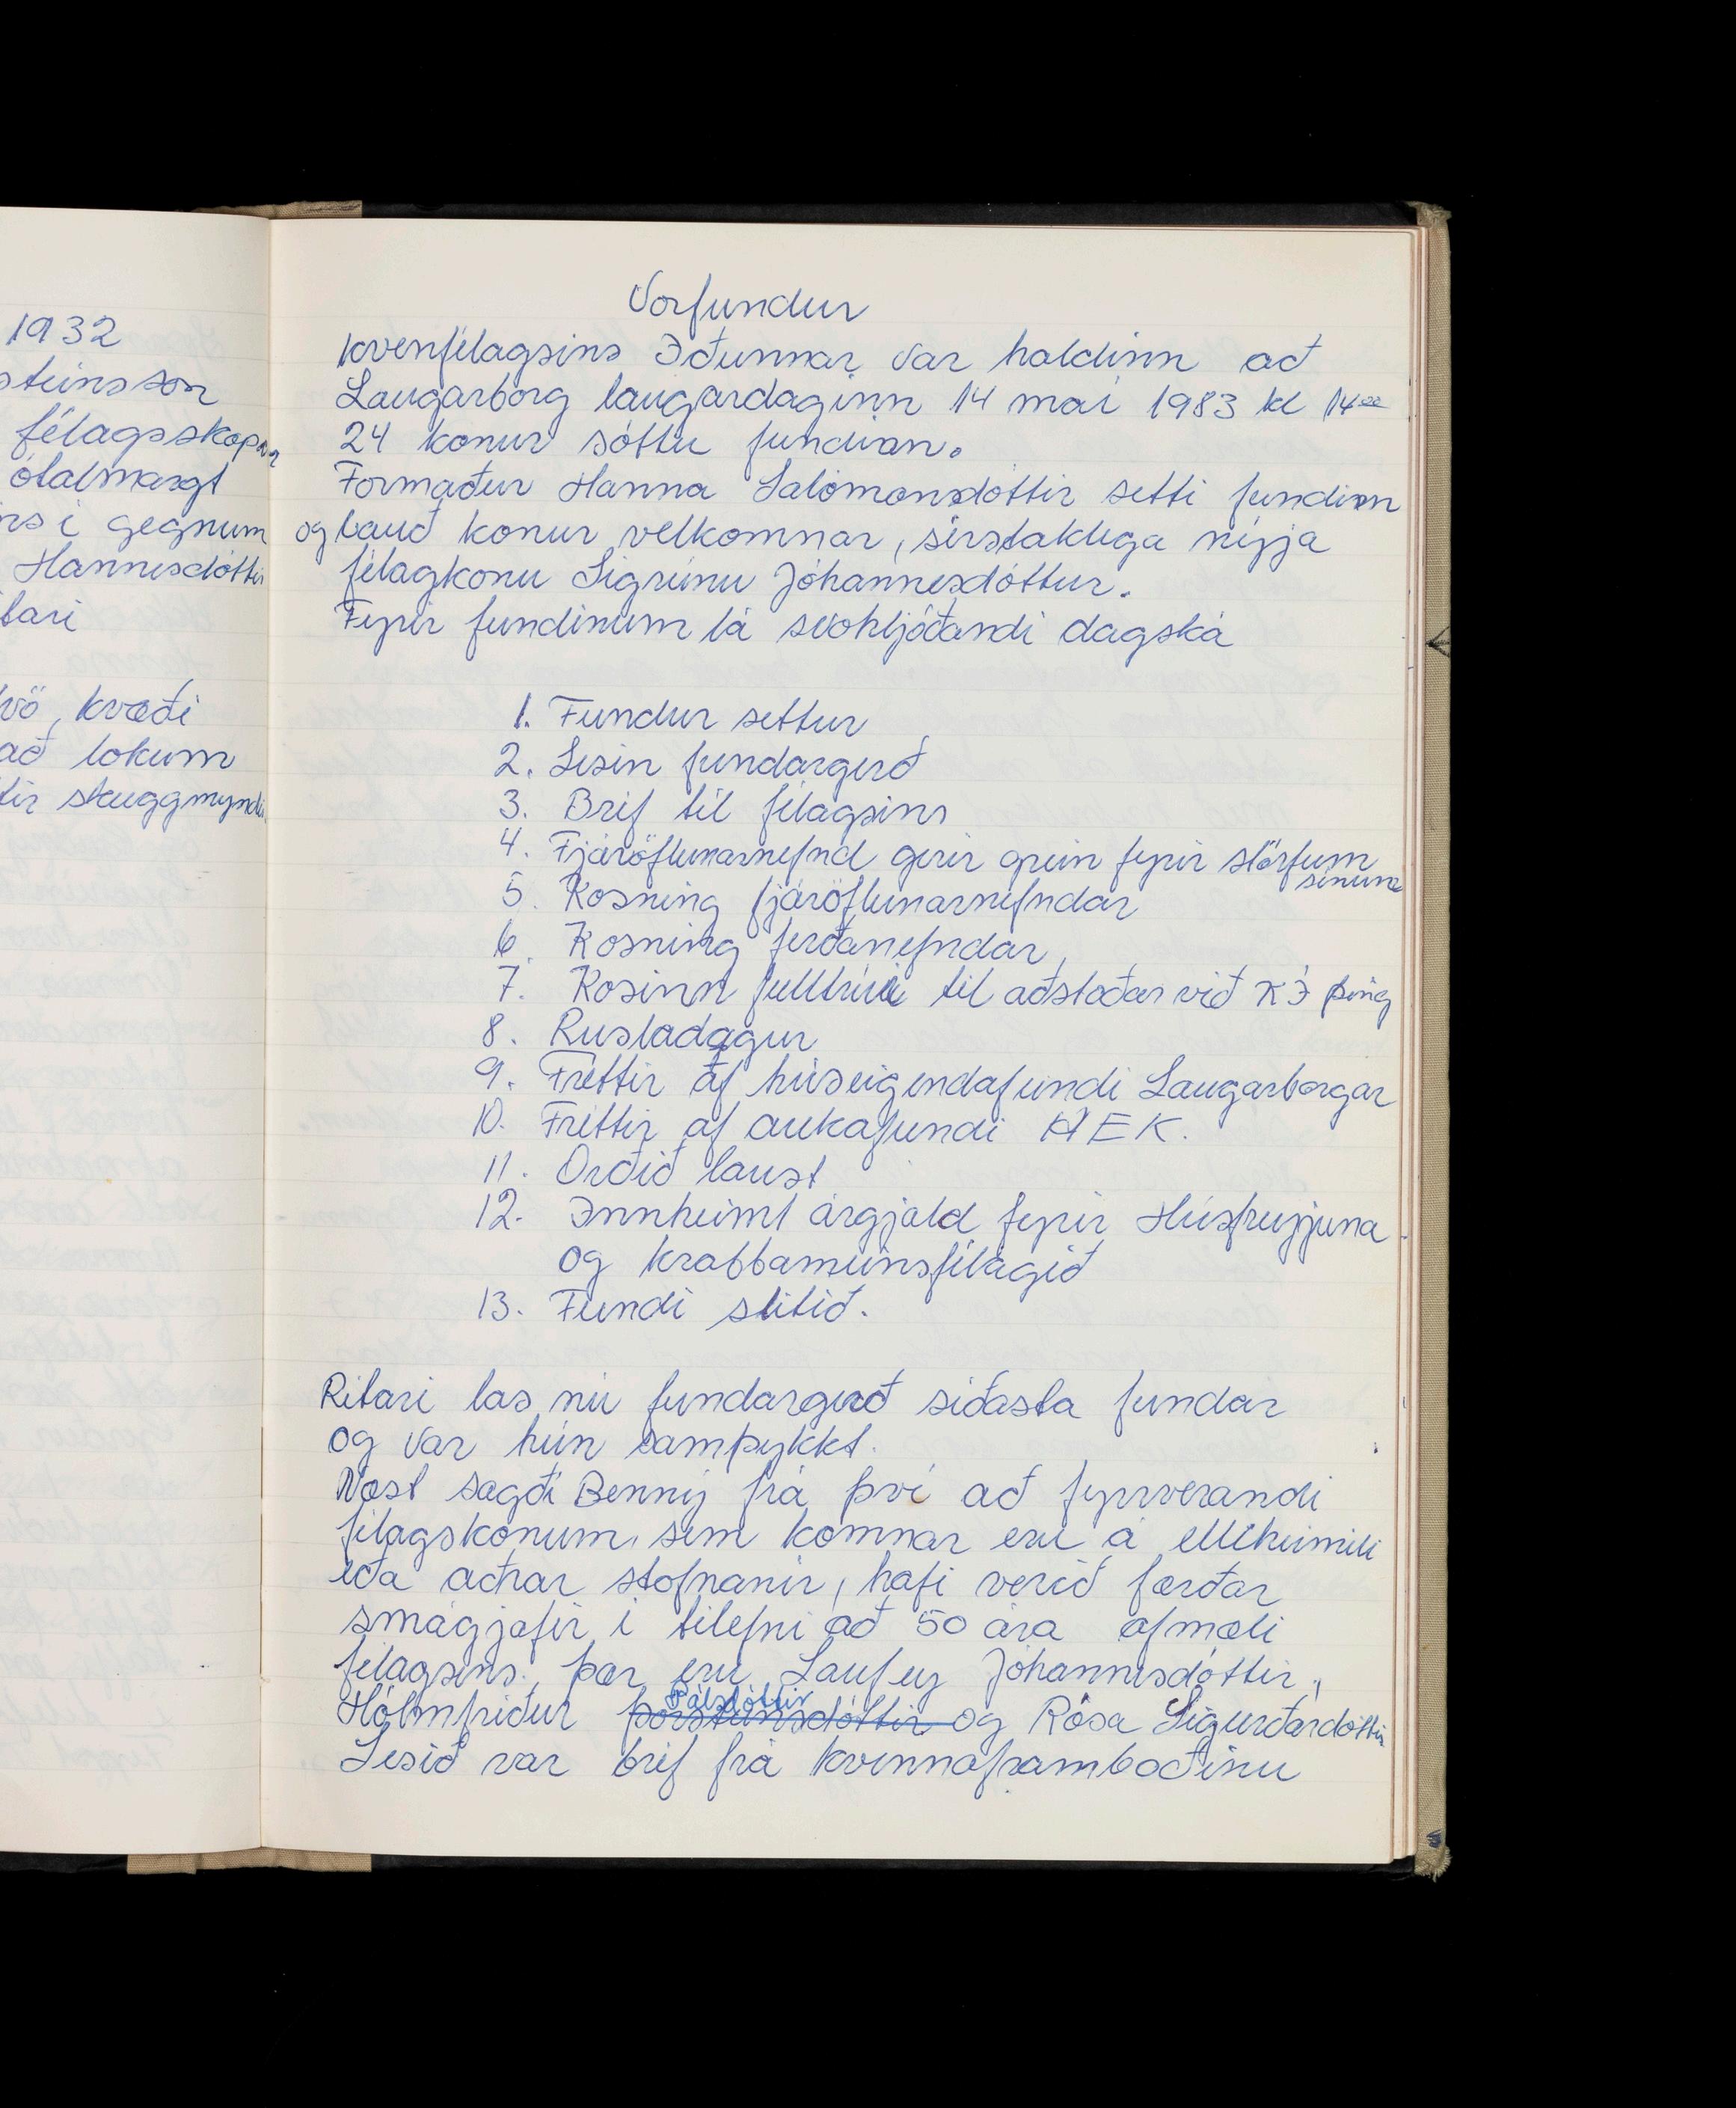 1932
steinsson
félagsskapar
ótalmargt
ns í gegnum
Hannesdóttir
itari
tvö, kvæði
að lokum
tir skuggmyndi
Vorfundur
kvenfélagsins Iðunnar var haldinn að
Laugarborg laugardaginn 14 maí 1983 kl 14ºº
24 konur sóttu fundinn.
Formaður Hanna Salómonsdóttir setti fundinn
og bauð konur velkomnar, sérstaklega nýja
félagkonu Sigrúnu Jóhannesdóttur.
Fyrir fundinum lá svohljóðandi dagská
1. Fundur settur
2. Lesin fundargerð
3. Bréf til félagsins
4. Fjáröflunarnefnd gerir grein fyrir störfum
sínum
5. Kosning fjáröflunarnefndar
6. Kosning ferðanefndar
7. Kosinn fulltrúi til aðstoðar við KÍ þing
8. Rusladagur
9. Fréttir af húseigendafundi Laugarborgar
10. Fréttir af aukafundi HEK.
11. Orðið laust
12. Innheimt árgjald fyrir Húsfreyjuna
og krabbameinsfélagið
13. Fundi slitið.
Ritari las nú fundargerð síðasta fundar
og var hún samþykkt.
Næst sagði Benný frá því að fyrrverandi
félagskonum, sem komnar eru á elliheimili
eða aðrar stofnanir, hafi verið færðar
smágjafir í tilefni að 50 ára afmæli
félagsins. þær eru Laufey Jóhannesdóttir,
Pálsdóttir
Hólmfríður þorsteinsdóttir og Rósa Sigurðardóttir
Lesið var bréf frá kvennaframboðinu